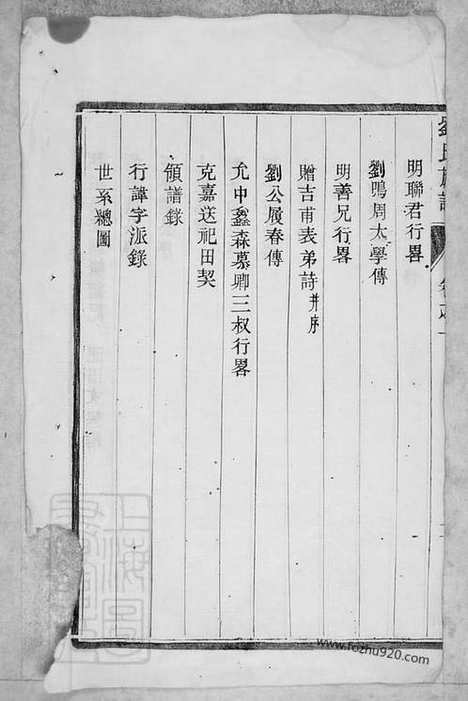 劉氏族譜 卷之一
明聯君行畧
劉鳴周太學傳
明善兄行畧
贈吉甫表弟詩并序
劉公履春傳
允中鑫森慕卿三叔行畧
克嘉送祀田契
領譜錄
行諱字派錄
世系總圖
www.fozhu920.com